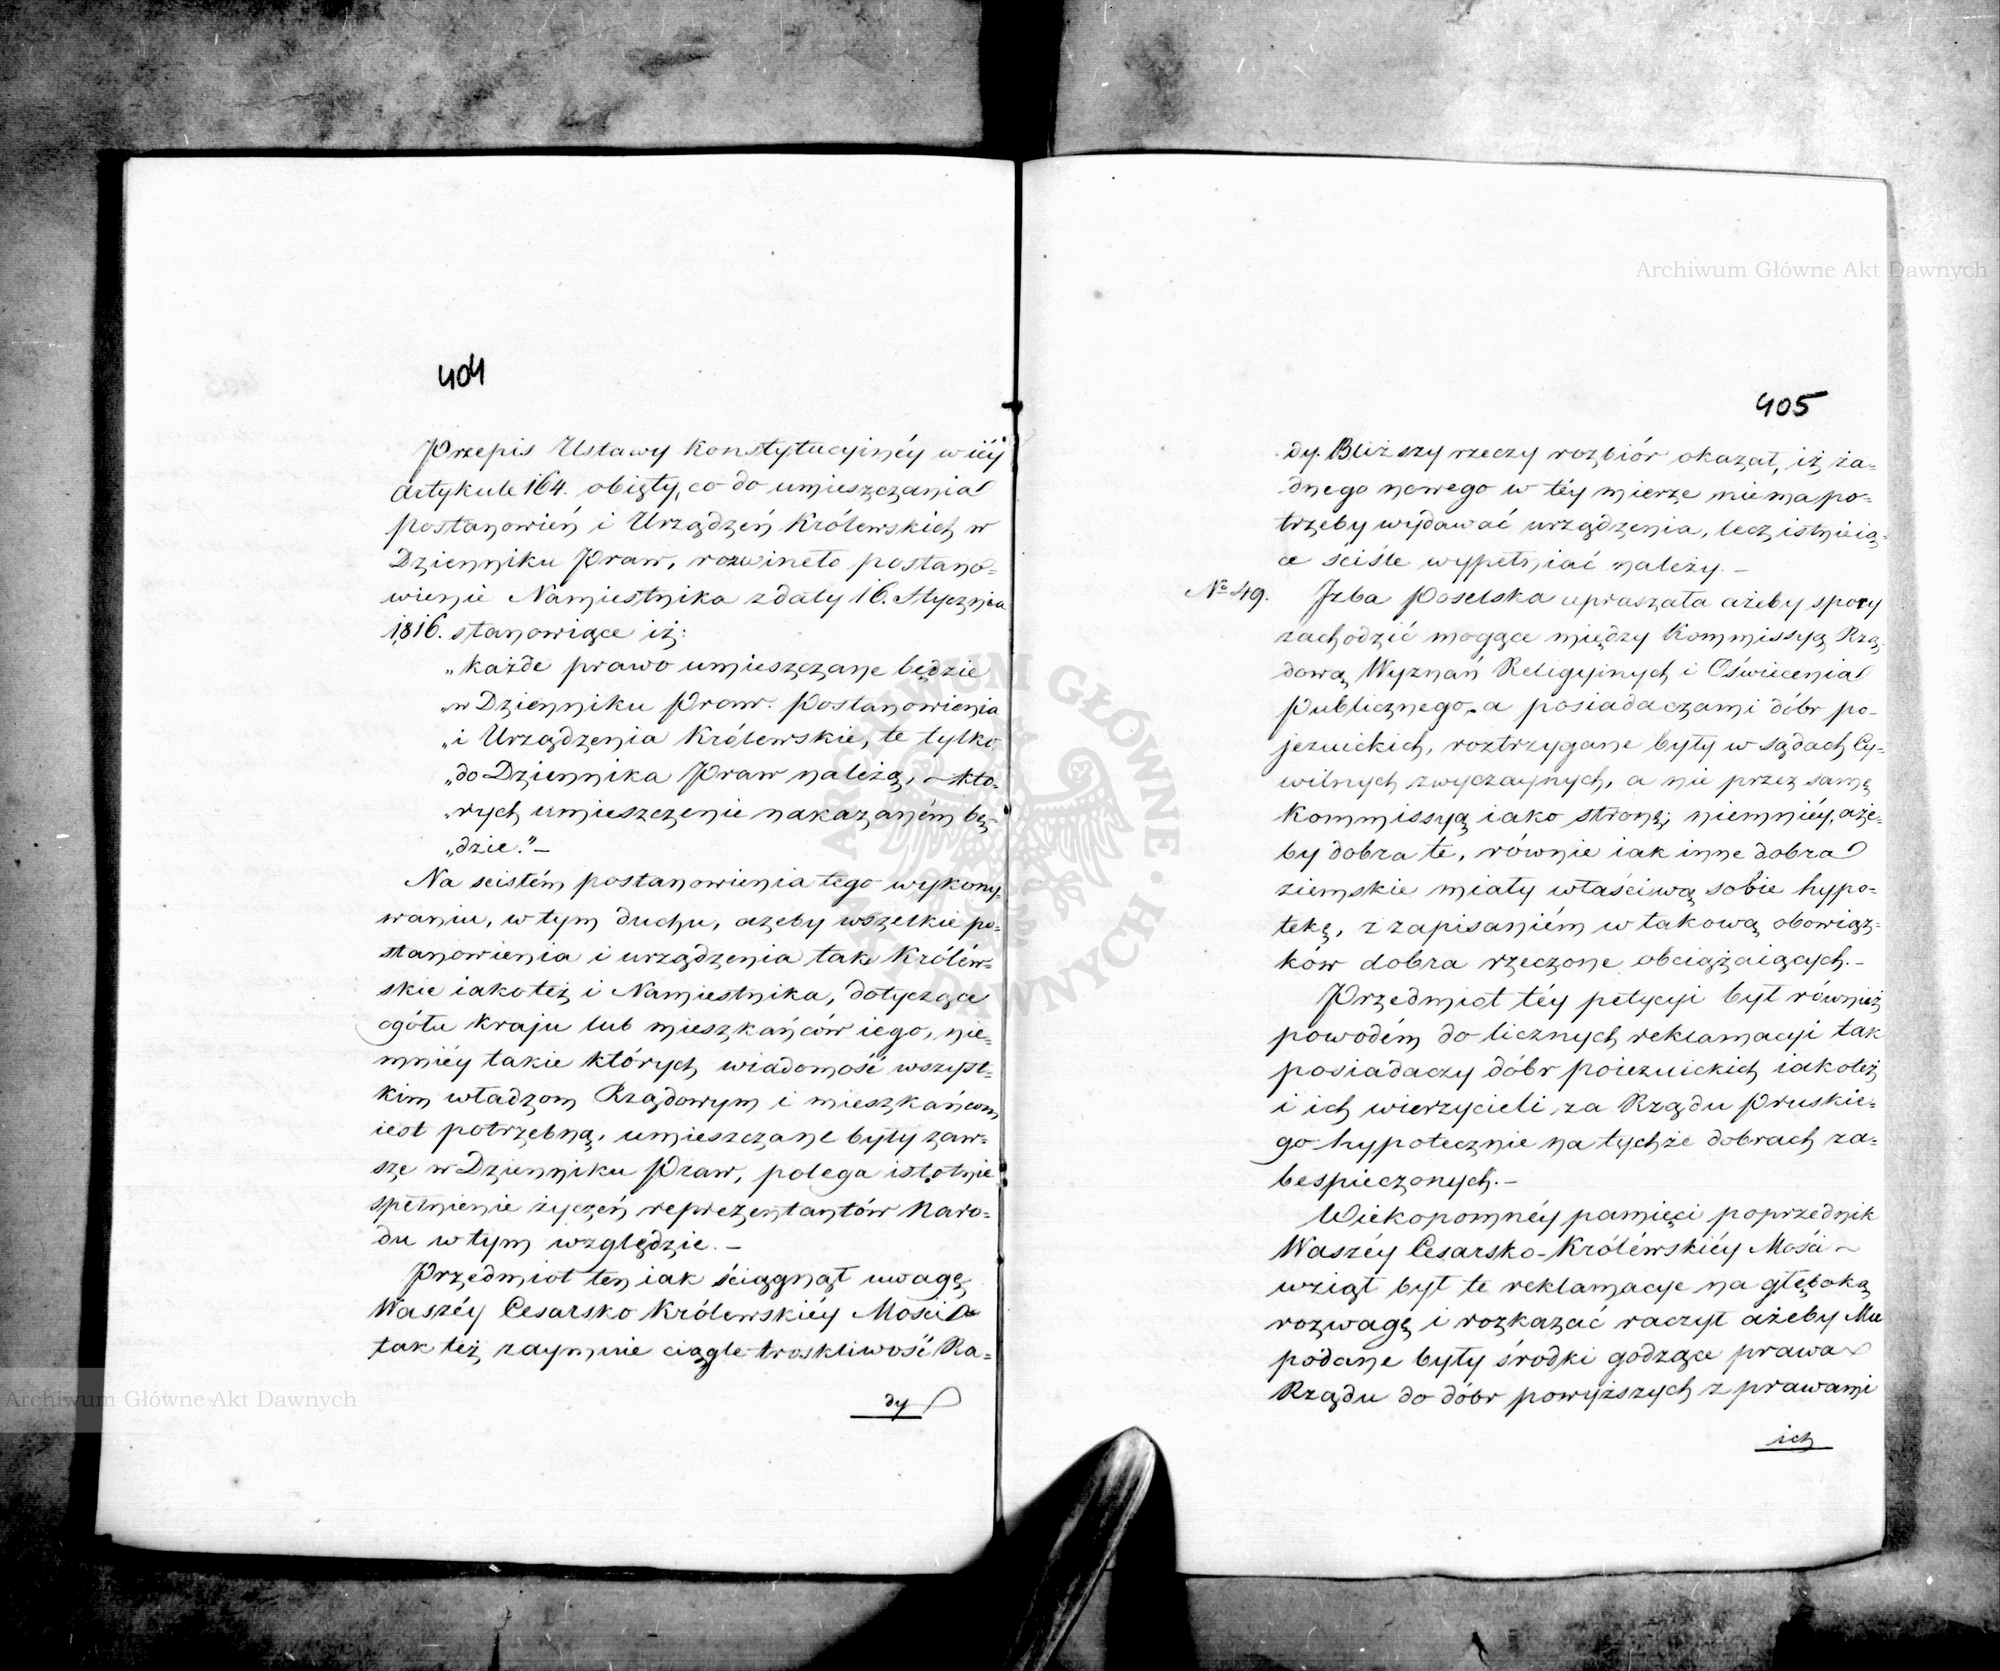 404
Przepis Ustawy Konstytucyinéy w iéy
Artykule 164. obięty, co do umieszczania
postanowień i Urządzeń Królewskich w
Dzienniku Praw, rozwineło postano=
wienie Namiestnika z daty 16. Stycznia
1816. stanowiące iż:
„każde prawo umieszczane będzie
„w Dzienniku Praw. Postanowienia
„i Urządzenia Królewskie, te tylko
„do Dziennika Praw należą, któ=
„rych umieszczenie nakazaném bę=
„dzie." —
Na scisłém postanowienia tego wykony=
waniu, w tym duchu, ażeby wszelkie po=
stanowienia i urządzenia tak Królew=
skie iako też i Namiestnika, dotyczące
ogółu kraju lub mieszkańców iego, nie=
mniéy takie których wiadomość wszyst=
kim władzom Rządowym i mieszkańcom
iest potrzebną, umieszczane były zaw=
sze w Dzienniku Praw, polega istotnie
spełnienie życzeń reprezentantów Naro=
du w tym względzie. —
Przedmiot ten iak ściągnął uwagę
Waszéy Cesarsko Królewskiéy Mości
tak też zaymuie ciągle troskliwość Ra=
dy
405
dy. Bliższy rzeczy rozbiór okazał, iż ża=
dnego nowego w téy mierze niema po=
trzeby wydawać urządzenia, lecz istnieią=
ce sciśle wypełniać należy. —
No 49. Izba Poselska upraszała ażeby spory
zachodzić mogące między Kommissyą Rzą=
dową Wyznań Religyinych i Oświecenia
Publicznego, a posiadaczami dóbr po=
jezuickich, roztrzygane były w sądach Cy=
wilnych zwyczaynych, a nie przez samę
Kommissyą iako stronę; niemniéy, aże=
by dobra te, równie iak inne dobra
ziemskie miały właściwą sobie hypo=
tekę, z zapisaniém w takową obowiąz=
ków dobra rzeczone obciążaiących. —
Przedmiot téy petycyi był również
powodém do licznych reklamacyi tak
posiadaczy dóbr poiezuickich iakoteż
i ich wierzycieli za Rządu Pruskie=
go hypotecznie na tychże dobrach za=
bespieczonych. —
Wiekopomnéy pamięci poprzednik
Waszéy Cesarsko-Królewskiéy Mości
wziął był te reklamacye na głęboką
rozwagę i rozkazać raczył ażeby Mu
podane były środki godzące prawa
Rządu do dóbr powyższych z prawami
ich
Archiwum Główne Akt Dawnych
Archiwum Główne Akt Dawnych
ARCHIWUM GŁÓWNE AKT DAWNYCH